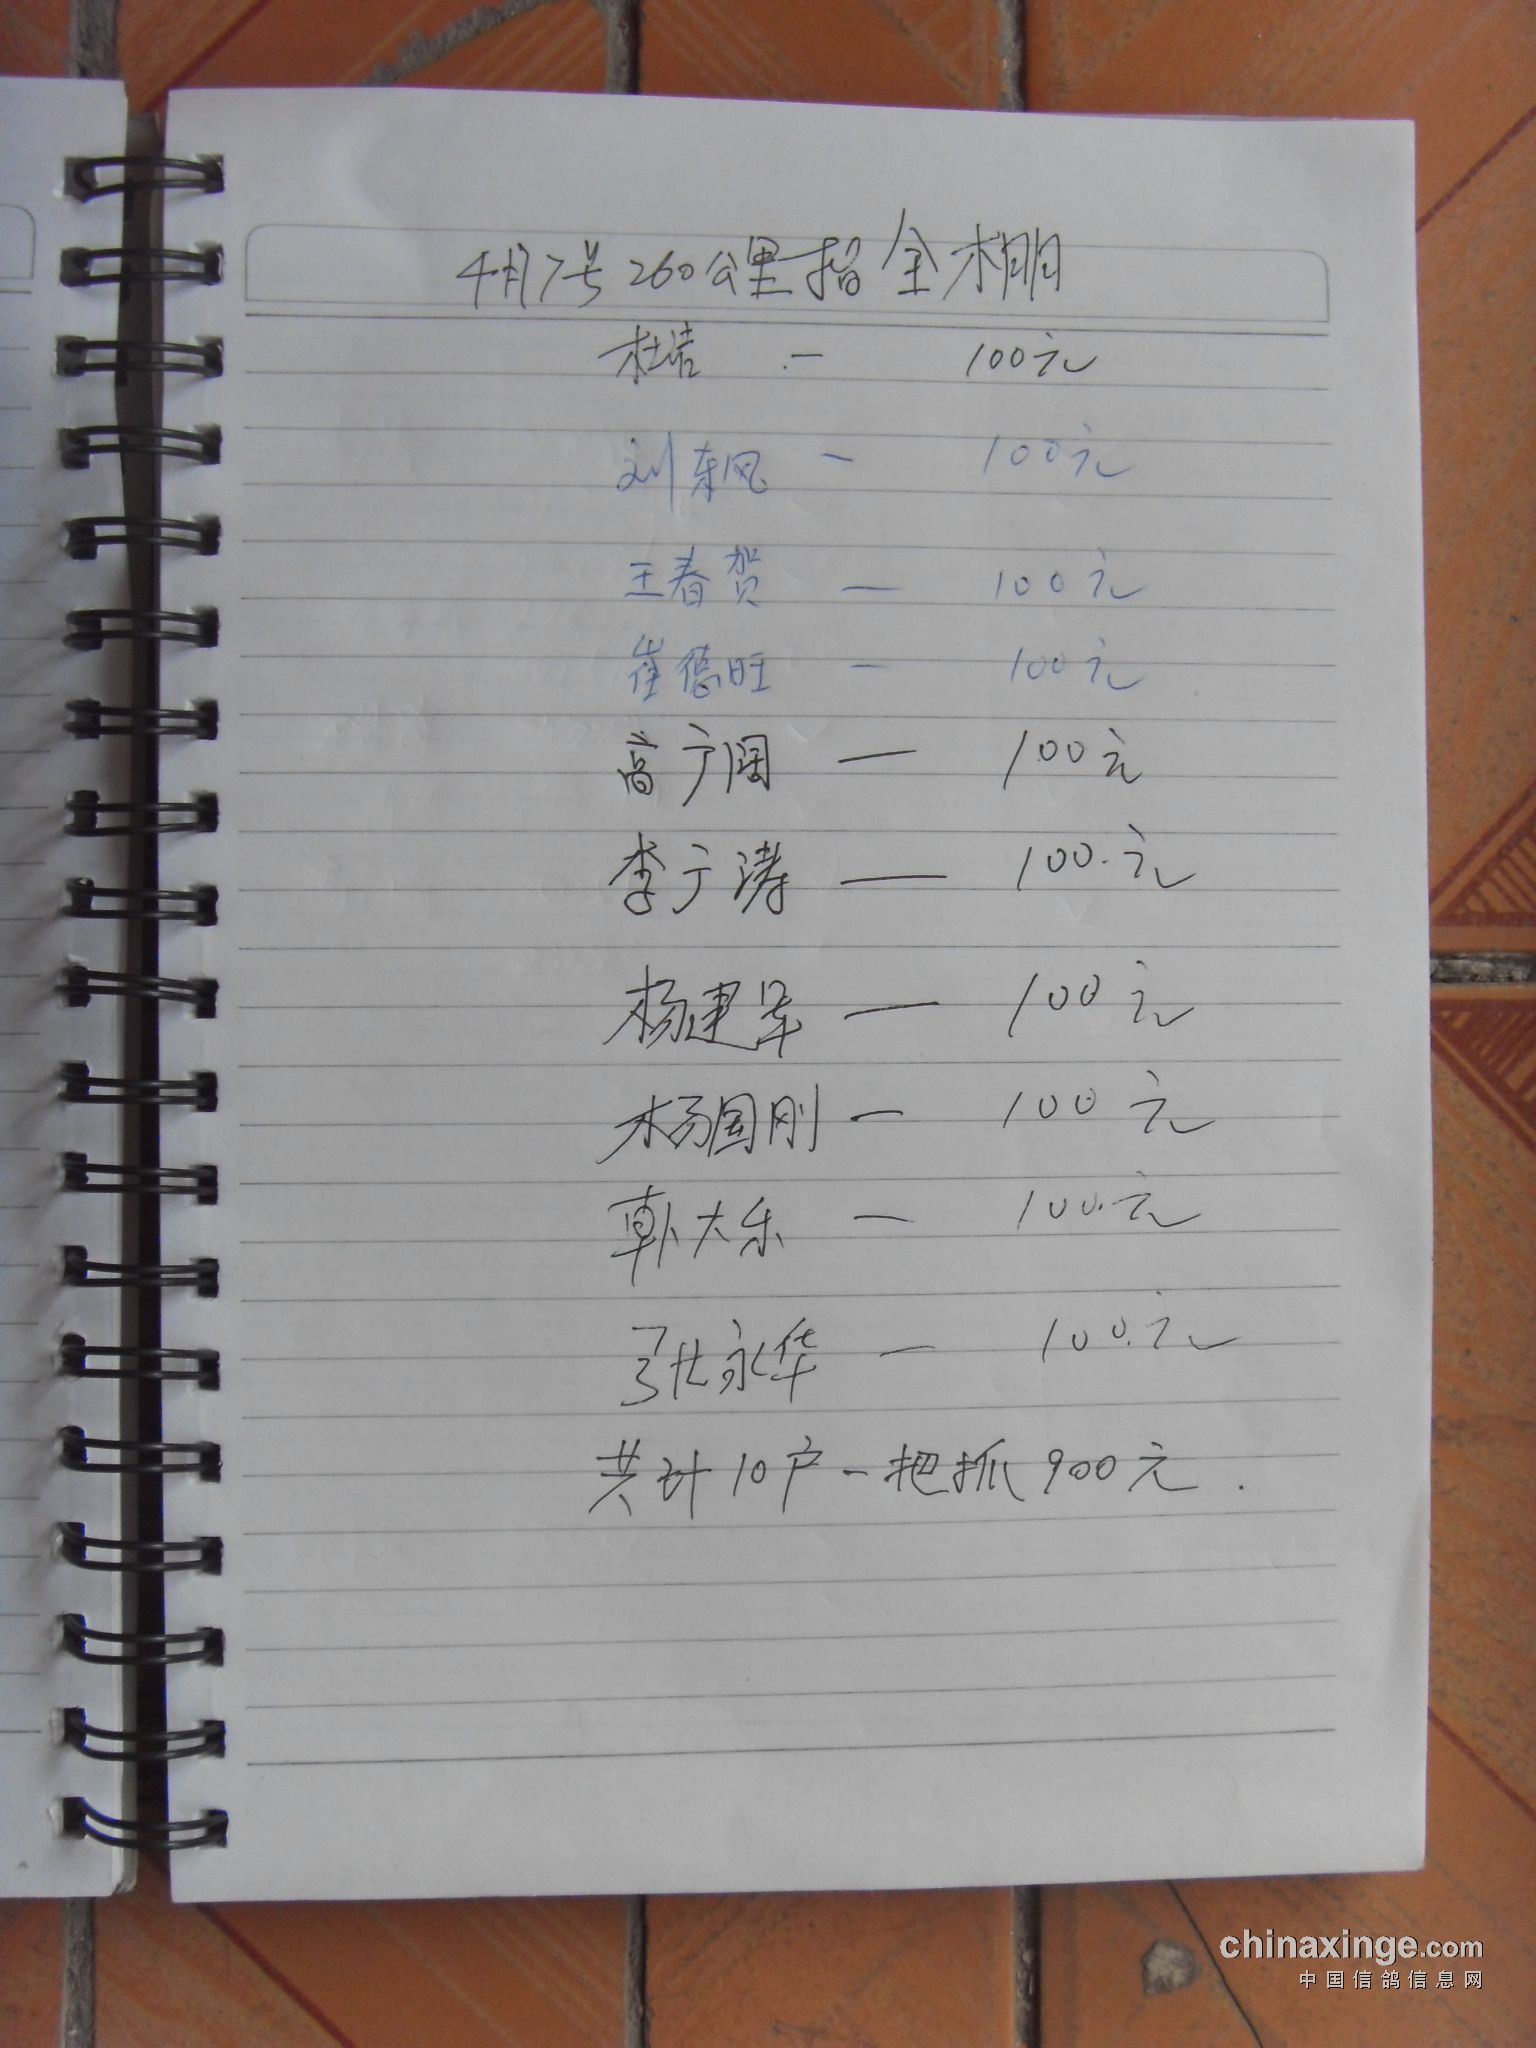 4月7号260公里指全棚
杜洁 一 100元
刘东风 一 100元
王春贺 — 100元
崔德旺 一 100元
高广阔 — 100元
李广涛 — 100.元
杨建军 — 100元
杨国刚 一 100元
韩大乐 一 100.元
张永华 一 100.元
共计10户一把抓900元.
chinaxinge.com
中国信鸽信息网